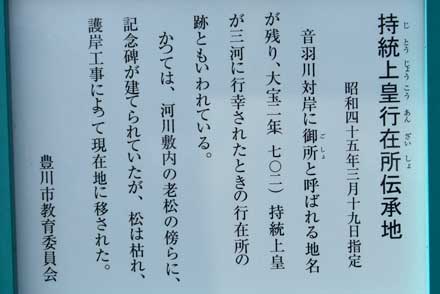 持統上皇行在所伝承地
じとうじょうこうあんざいしょ
昭和四十五年三月十九日指定
音羽川対岸に御所と呼ばれる地名
ごしょ
が残り、大宝二年(七〇二)持統上皇
が三河に行幸されたときの行在所の
跡ともいわれている。
かつては、河川敷内の老松の傍らに、
記念碑が建てられていたが、松は枯れ、
護岸工事によって現在地に移された。
豊川市教育委員会